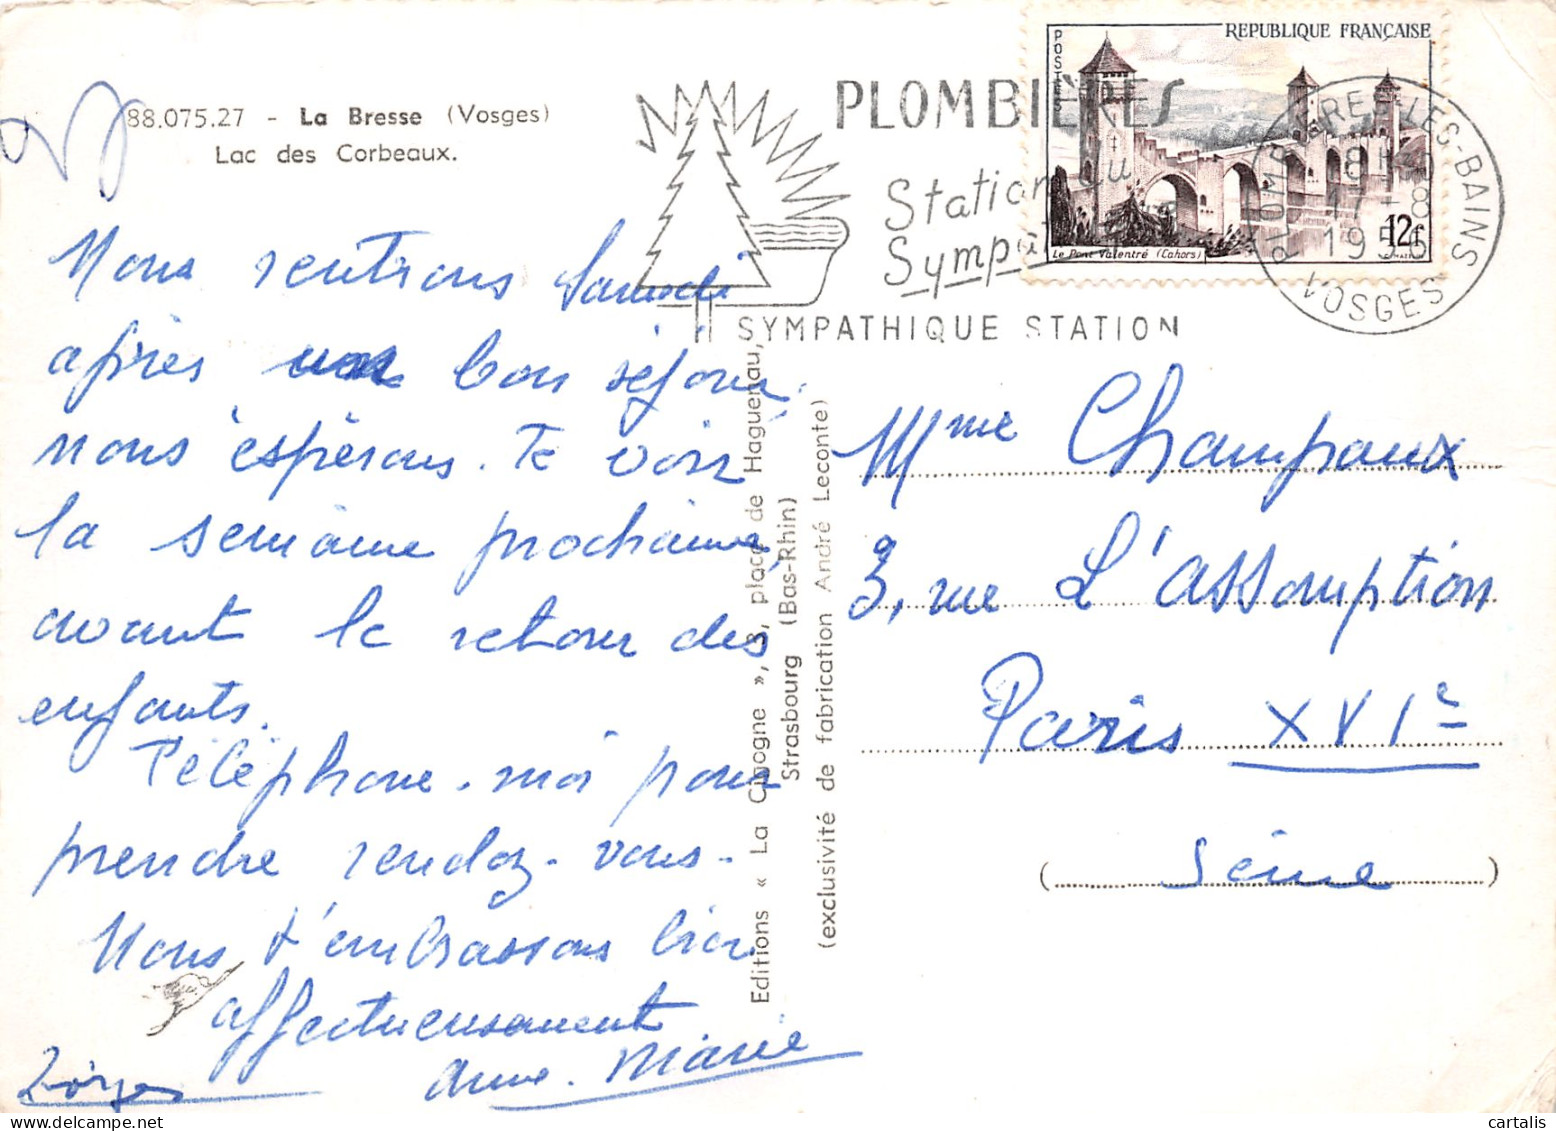 88.075.27 - La Bresse (Vosges)
Lac des Corbeaux.
Nous rentrons Samedi
après bon séjour
nous espérons. Te voir
la semaine prochaine,
avant le retour des
enfants.
Téléphone-moi pour
prendre rendez-vous.
Nous t'embrassons bien
affectueusement
Anne-Marie
Editions « La Cigogne », 3, place de Haguenau,
Strasbourg (Bas-Rhin)
(exclusivité de fabrication André Leconte)
PLOMBIÈRES
Station du
SYMPATHIQUE STATION
REPUBLIQUE FRANÇAISE
POSTES
12F
Le Pont Valentré (Cahors)
PLOMBIERES-LES-BAINS
VOSGES
Mme Champaux
3, rue L'assomption
Paris XVIe
(Seine)
cartalis